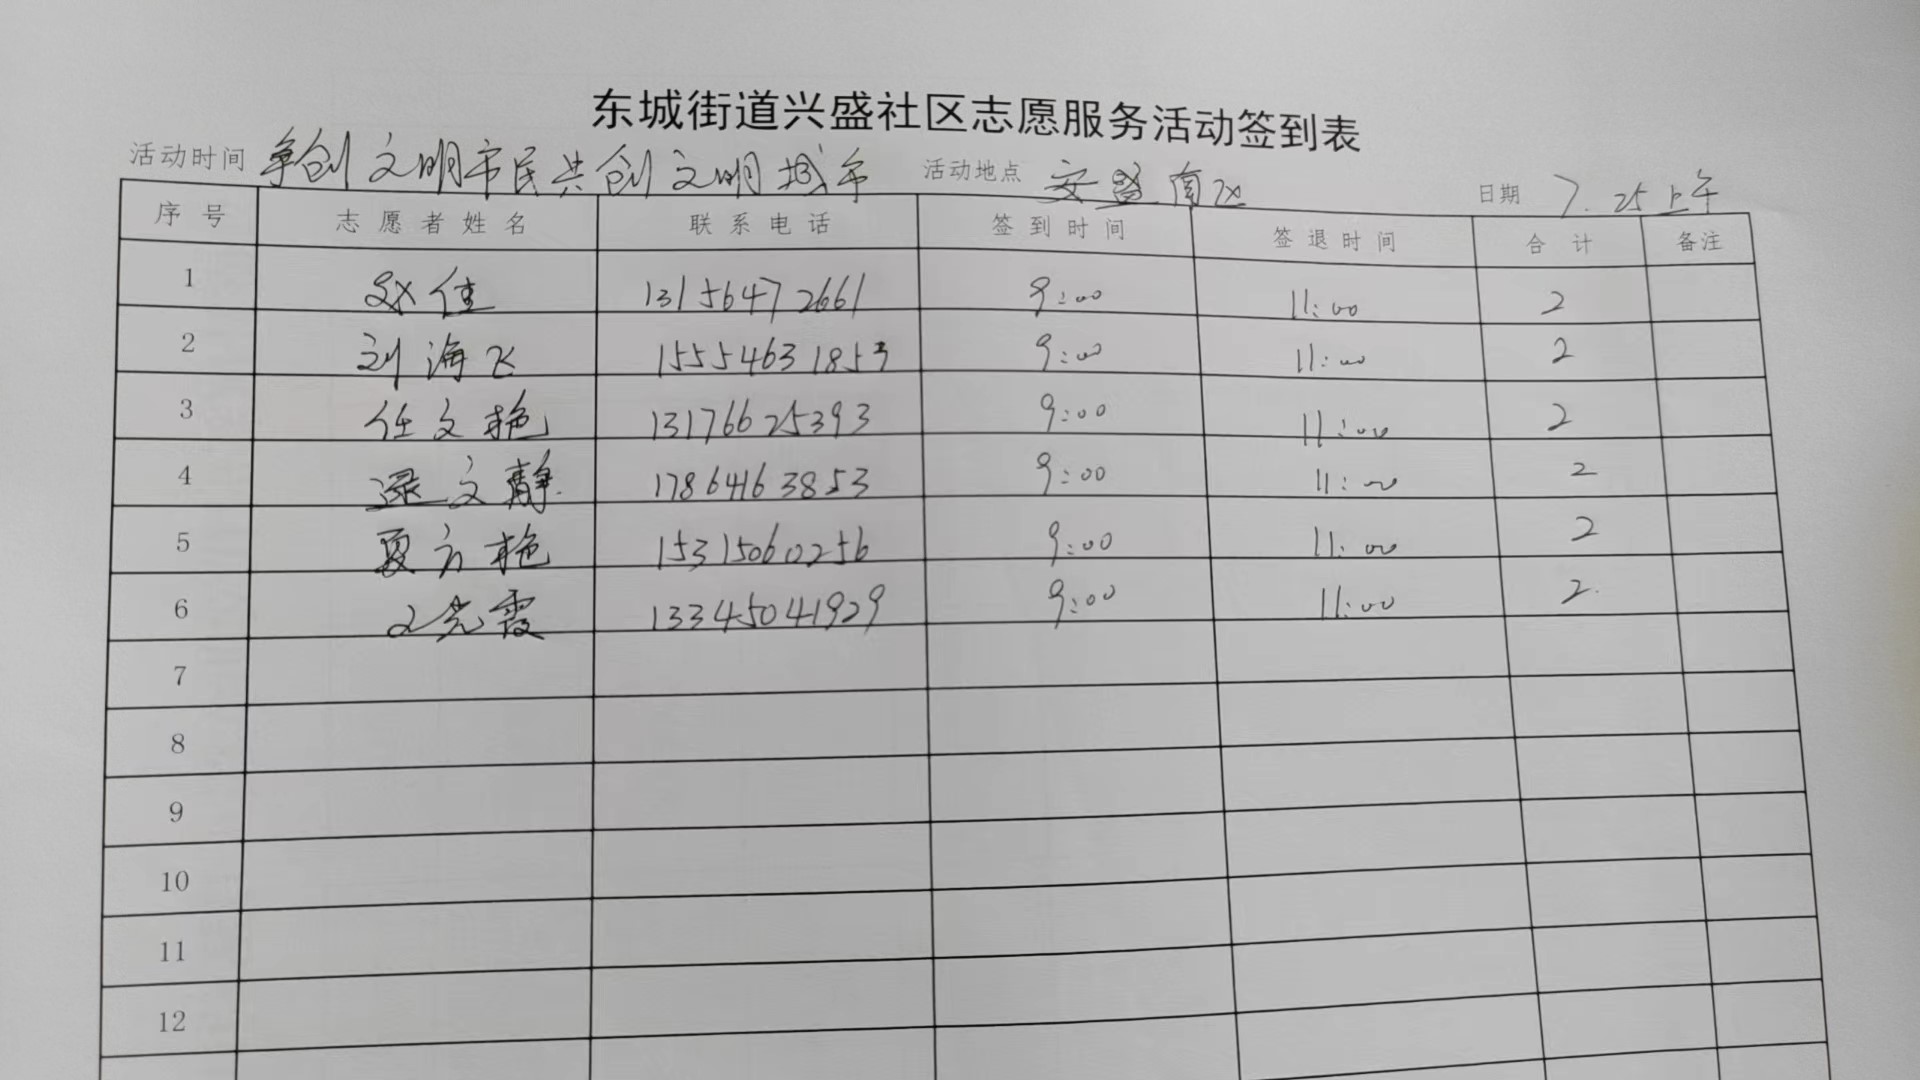 东城街道兴盛社区志愿服务活动签到表
活动时间 争创文明市民共创文明城市 活动地点 安盛南区 日期 7.25上午
序号 志愿者姓名 联系电话 签到时间 签退时间 合计 备注
1 佳 13156472661 9:00 11:00 2
2 刘海飞 15554631853 9:00 11:00 2
3 任文艳 13176625393 9:00 11:00 2
4 逯文静 17864163853 9:00 11:00 2
5 夏方艳 15315060256 9:00 11:00 2
6 光霞 13345041929 9:00 11:00 2
7
8
9
10
11
12